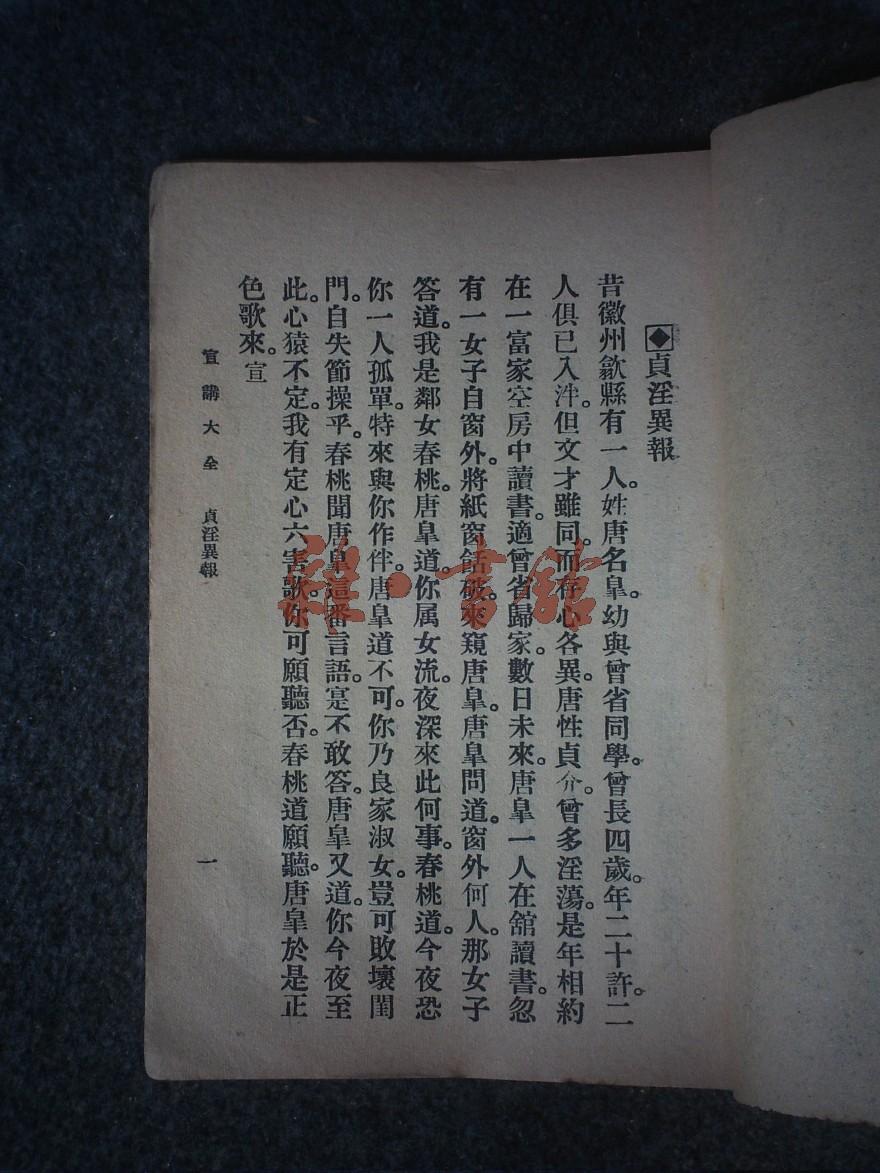 貞淫異報
昔徽州歙縣有一人。姓唐名皐。幼與曾省同學。曾長四歲。年二十許。二
人俱已入泮。但文才雖同。而存心各異。唐性貞介。曾多淫蕩。是年相約
在一富家空房中讀書。適曾省歸家。數日未來。唐皐一人在舘讀書。忽
有一女子自窗外。將紙窗餂破。來窺唐皐。唐皐問道。窗外何人。那女子
答道。我是鄰女春桃。唐皐道。你属女流。夜深來此何事。春桃道。今夜恐
你一人孤單。特來與你作伴。唐皐道不可。你乃良家淑女。豈可敗壞閨
門。自失節操乎。春桃聞唐皐這番言語。寔不敢答。唐皐又道。你今夜至
此。心猿不定。我有定心六害歌。你可願聽否。春桃道願聽。唐皐於是正
色歌來。宣
宣講大全 貞淫異報 一
雜·書舘